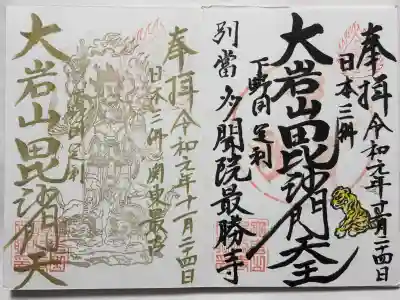 奉拝 令和元年十一月二四日
日本三
大岩山毘沙門天王
下野国足利
別當多聞院最勝寺
奉拝 令和元年十一月二四日
日本三 関東最古
足利
大岩山毘沙門天